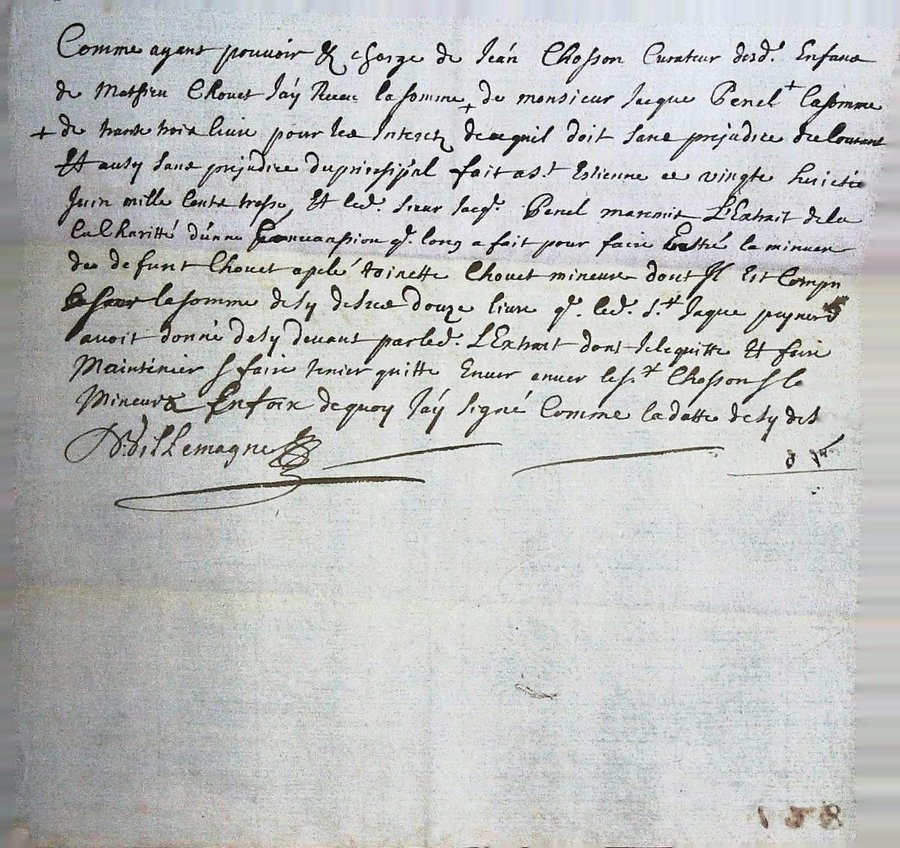 Comme ayant pouvoir & charge de Jean Chosson Curateur desd. Enfans
de Mathieu Chouet J'ay Receu la somme + de monsieur Jacque Penel + la somme
+ de trante trois livre pour les Interetz de ce quil doit sans prejudice du Courant
Et aussy sans prejudice du principal fait a st Estienne ce vingte huictie
Juin mille cents trese Et led. sieur Jacq. Penel ma remis L'Extrait de la
d'unne q. long a fait pour faire la mineur
de defunt Chouet aplé toinette Chouet mineure dont Il Est Compri
la somme de sy desus douze livre q. led. Sr. Jaque
avoit donné desy devant par led. L'Extrait dont Je le quitte Et faire
Maintenier & faire tenier quitte Enver enver le sr. Chosson & le
Mineurs En foix de quoy J'ay signé Comme la datte de sy des
D. Villemagne